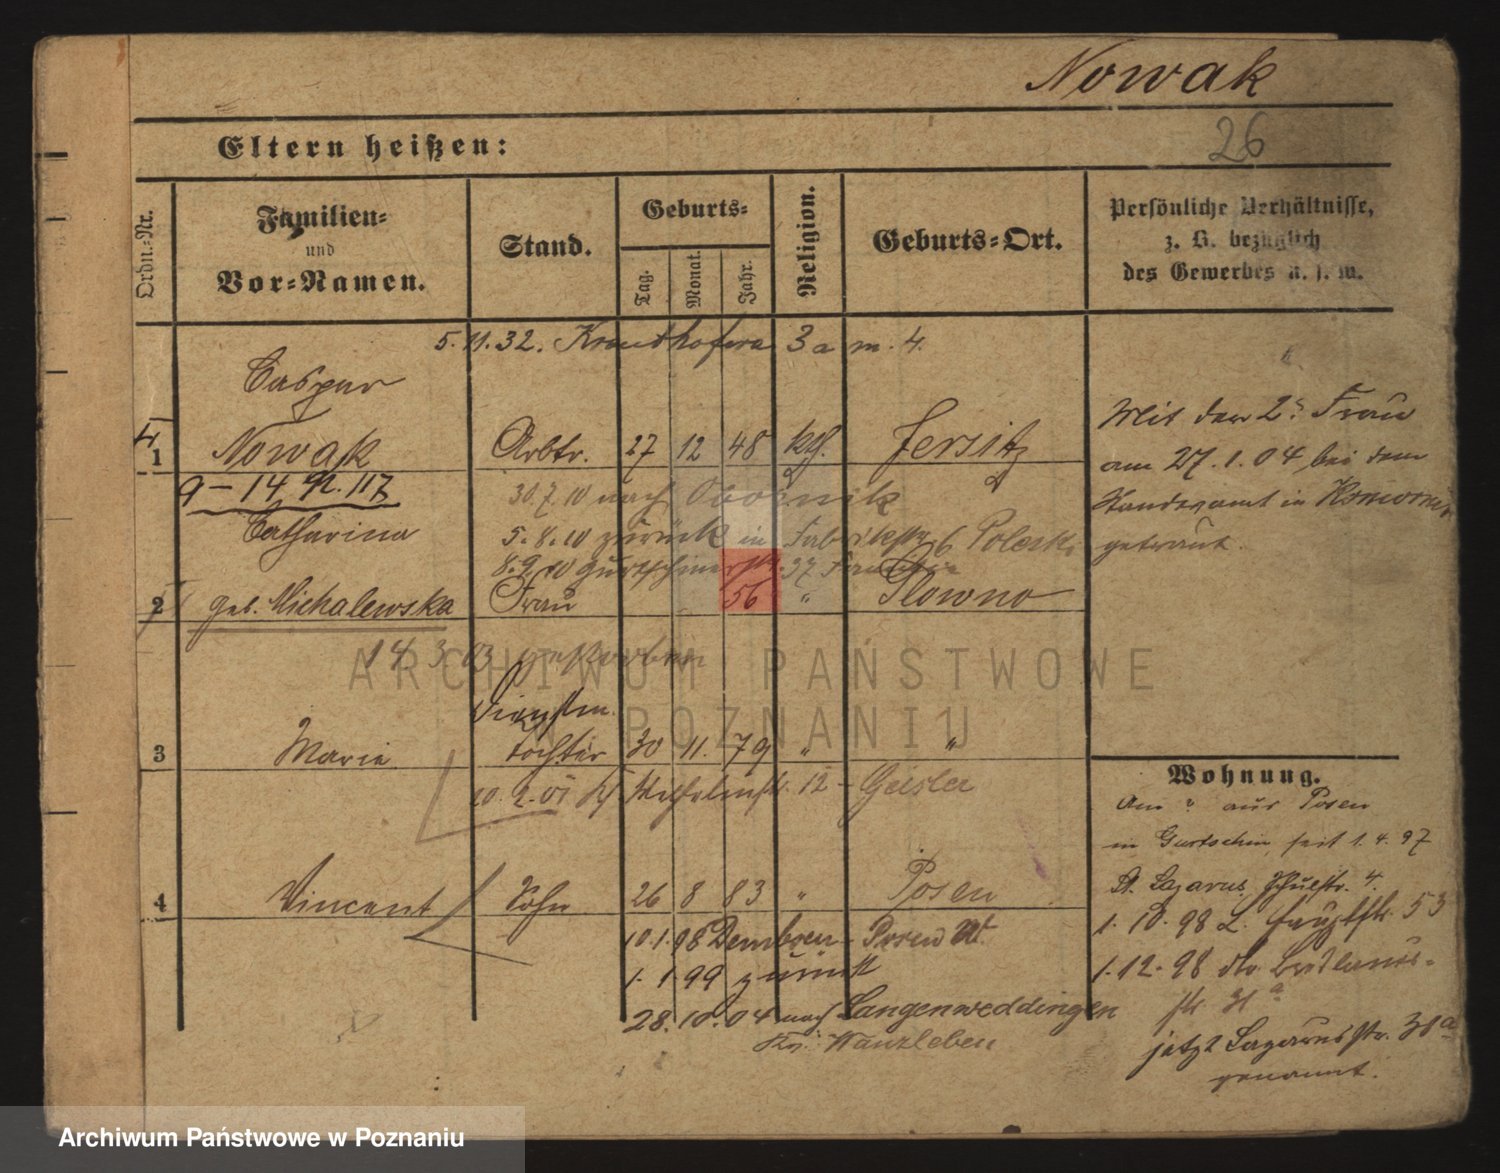 Nowak
26
Eltern heißen:
Ordn.-Nr.
Familien-
und
Vor-Namen.
Stand.
Geburts-
Tag.
Monat.
Jahr.
Religion.
Geburts-Ort.
Persönliche Verhältnisse,
z. B. bezüglich
des Gewerbes u. s. w.
5.11.32. 3a m. 4.
Caspar
1 Nowak Arbtr. 27 12 48 kth. Jersitz
9-14 N. 117
30.7.10 nach Obornik
Catharina
5.8.10 zurück in Fabrikstr 6
8.9.10 Gurtschinerstr. 37
2 geb. Michalewska Frau 56 " Plowno
14. 3. 03 gestorben
3 Marie tochter 30 11. 79 " "
10. 2. 01 Wilhelmstr. 12 - Geisler
4 Vincent Sohn 26 8 83 " Posen
10.1.98 Dembsen - Posen
1.1.99 zurück
28.10.04 nach Langenweddingen
Kr. Wanzleben
Mit der 2. Frau
am 27.1.04, bei dem
Standesamt in
getraut.
Wohnung.
Am " aus Posen
in Gurtschin, seit 1.4.97
St. Lazarus, Schulstr. 4.
1. 10. 98 L. Hauptstr. 53
1.12.98
str 31a
jetzt Lazarusstr. 31a
genannt.
ARCHIWUM PAŃSTWOWE
W POZNANIU
Archiwum Państwowe w Poznaniu